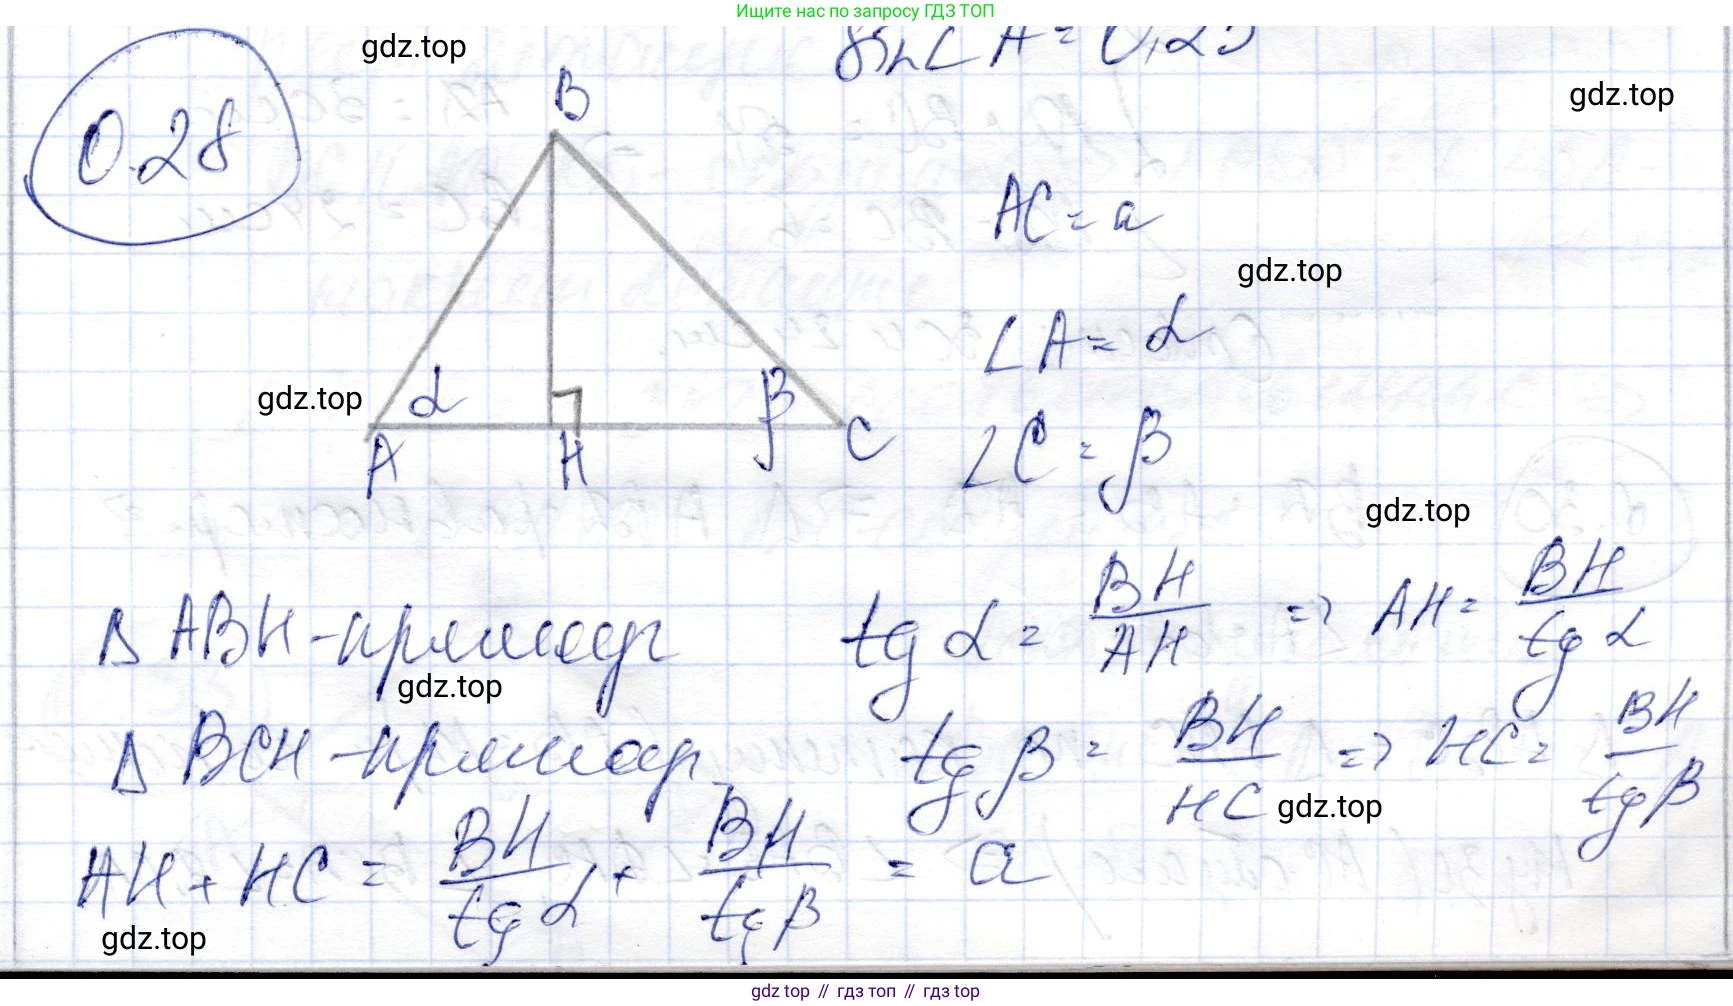 Ищите нас по запросу ГДЗ ТОП
gdz.top
sin∠A = 0,25
0.28
B
gdz.top
AC = a
gdz.top
∠A = α
gdz.top
α
β
A
H
C
∠C = β
gdz.top
Δ ABH - прямоуг
tg α = BH/AH => AH = BH/tg α
gdz.top
Δ BCH - прямоуг
tg β = BH/HC => HC = BH/tg β
gdz.top
AH + HC = BH/tg α + BH/tg β = a
gdz.top
gdz top // гдз топ // гдз top